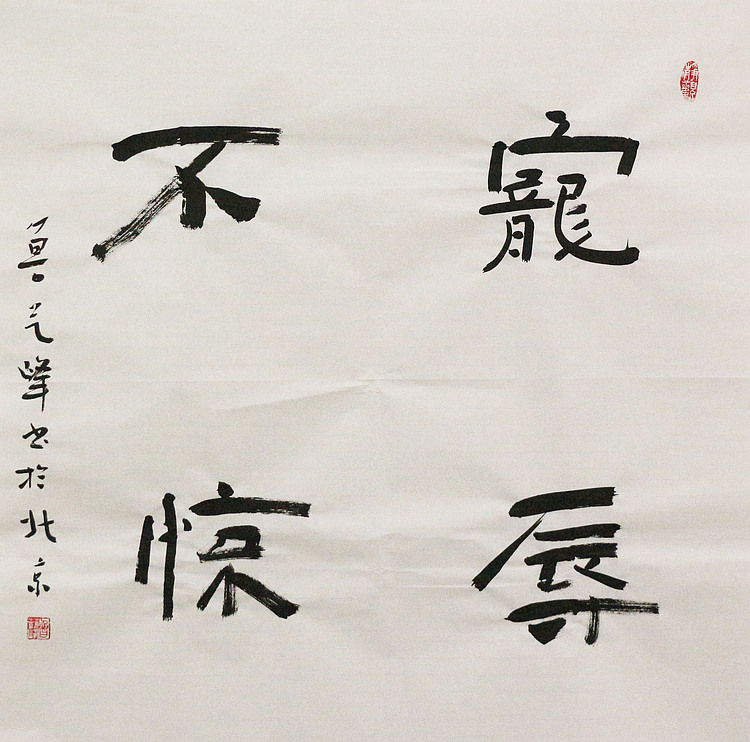 寵辱
不惊
书於北京